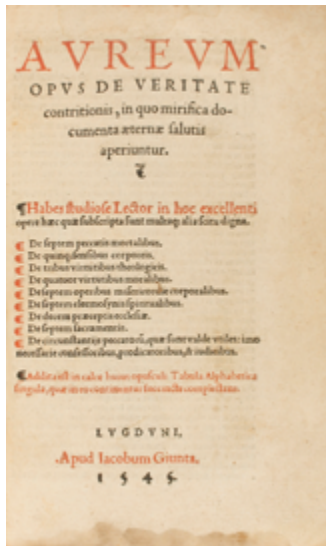 AVREVM
OPVS DE VERITATE
contritionis, in quo mirifica do-
cumenta æternæ salutis
aperiuntur.
¶Habes studiose Lector in hoc excellenti
opere hæc quæ subscripta sunt multaq; alia scitu digna.
¶ De septem peccatis mortalibus.
¶ De quinq; sensibus corporis.
¶ De tribus virtutibus theologicis.
¶ De quatuor virtutibus moralibus.
¶ De septem operibus misericordiæ corporalibus.
¶ De septem elemosynis spiritualibus.
¶ De decem præceptis ecclesiæ.
¶ De septem sacramentis.
¶ De circunstantiis peccatorū, quæ sunt valde vtiles: imo
necessarie confessoribus, prædicatoribus, &
¶ Addita est in calce huius opusculi Tabula Alphabetica
singula, quæ in eo continentur complectens.
LVGDVNI,
Apud Iacobum Giunta,
1545